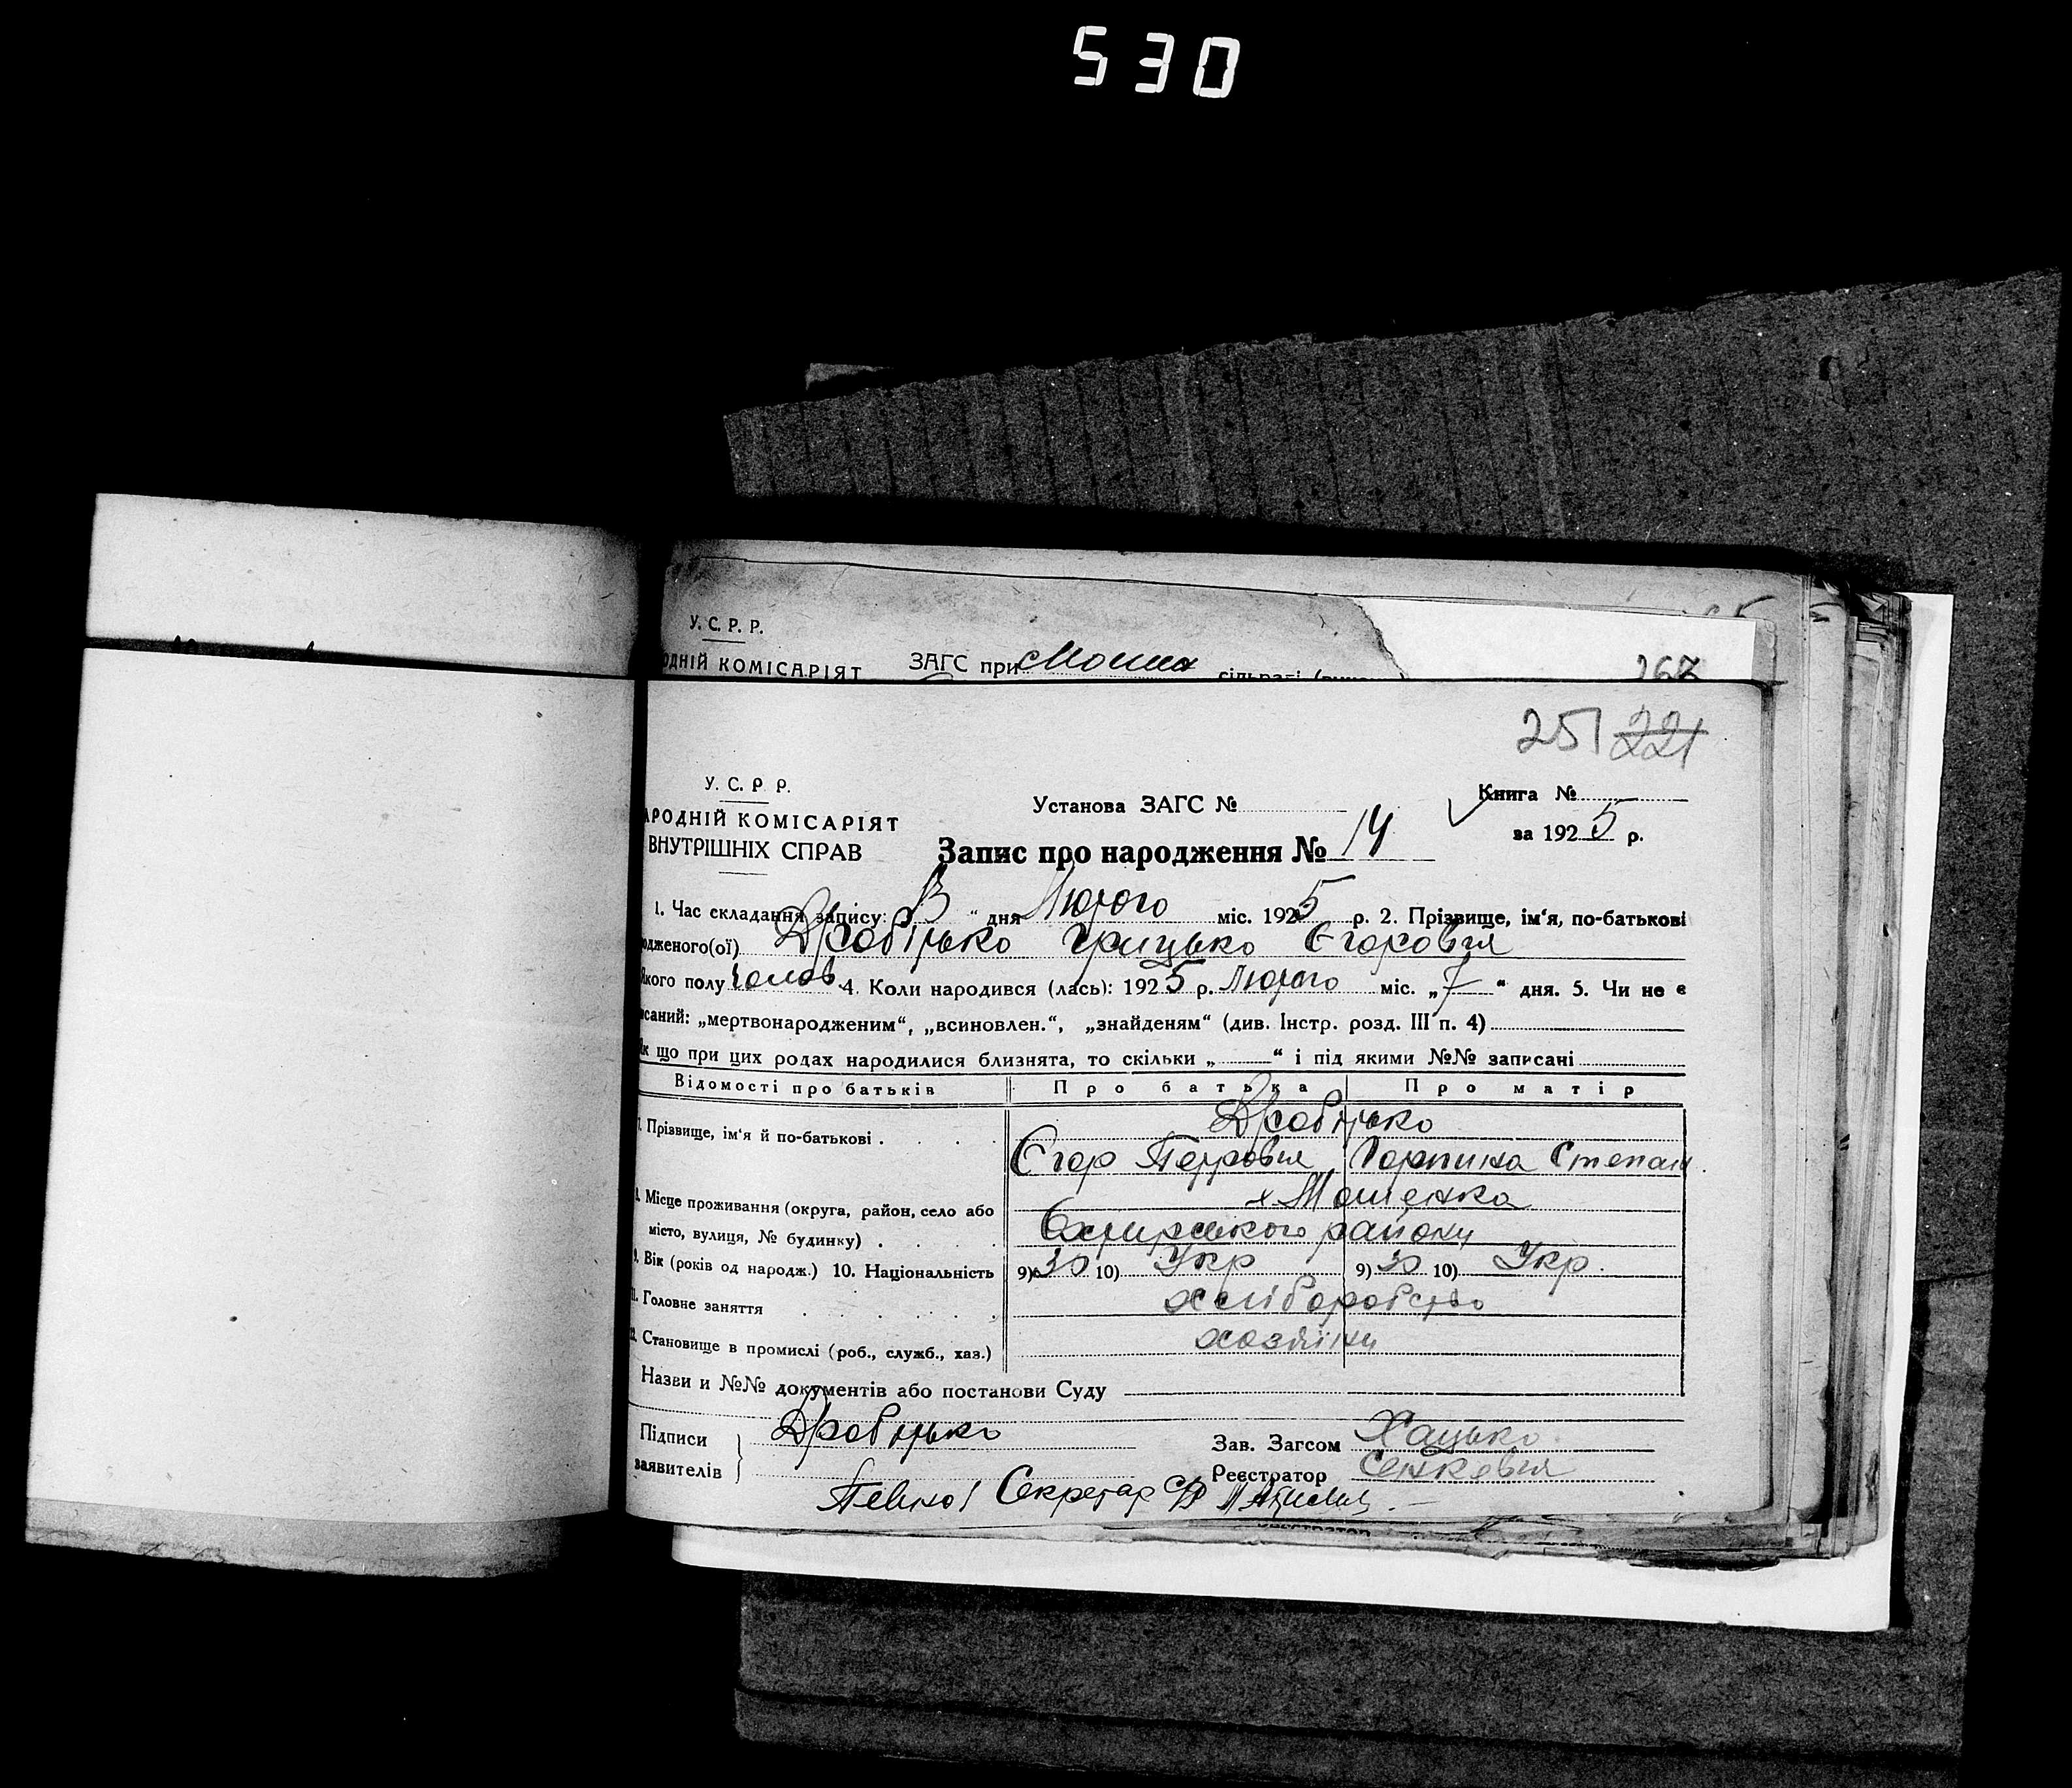 530
У. С. Р. Р.
ОДНІЙ КОМІСАРІЯТ ЗАГС при
267
251 221
У. С. Р. Р.
АРОДНІЙ КОМІСАРІЯТ
ВНУТРІШНІХ СПРАВ
Установа ЗАГС №
Книга №
за 1925 р.
Запис про народження № 14
1. Час складання запису: „ “ дня Лютого міс. 1925 р. 2. Прізвище, ім‘я, по-батькові
одженого(ої) Дробітько Грицько Єгорович
якого полу чолов. 4. Коли народився (лась): 1925 р. Лютого міс. „7“ дня. 5. Чи не є
исаний: „мертвонародженим“, „всиновлен.“, „знайденям“ (див. Інстр. розд. III п. 4)
Як що при цих родах народилися близнята, то скільки „ “ і під якими №№ записані
Відомості про батьків Про батька Про матір
7. Прізвище, ім‘я й по-батькові . Дробітько
Єгор Петрович Горпина Степан.
8. Місце проживання (округа, район, село або х. Мошенка
місто, вулиця, № будинку) . Охтирського району
9. Вік (років од народж.) 10. Національність 9) 30 10) Укр 9) 30 10) Укр.
11. Головне заняття хліборобство
12. Становище в промислі (роб., служб., хаз.) хозяїни
Назви и №№ документів або постанови Суду
Підписи Дробітько Зав. Загсом Хацько
заявителів Реєстратор Сенкевич
Секретар